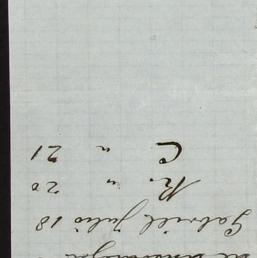 Gabriel Julio 18
R. " 20
C " 21